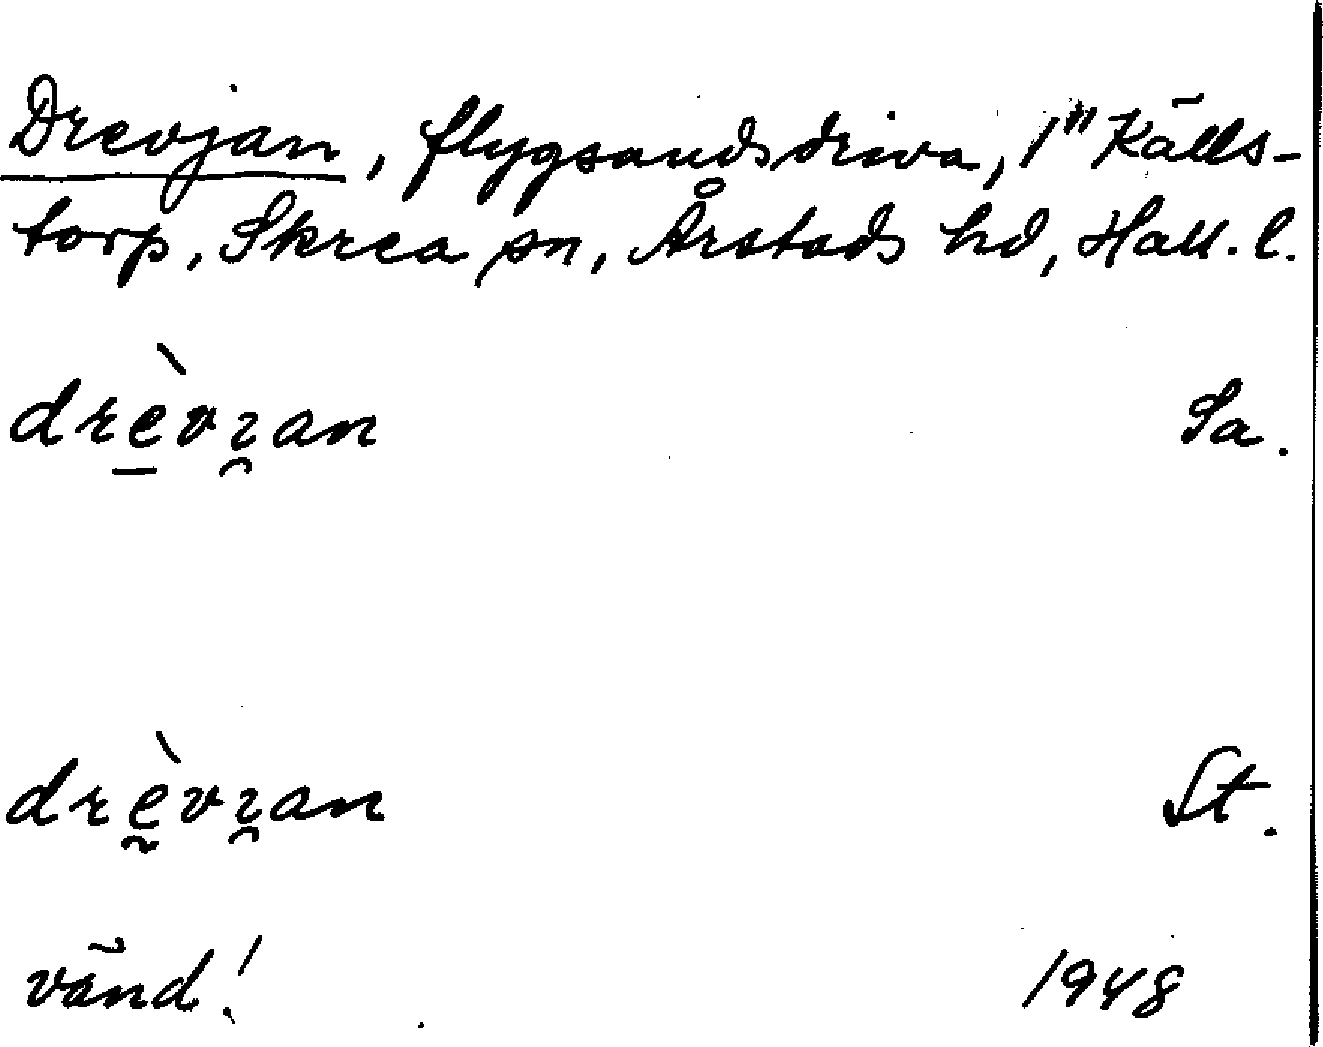 Drevjan, flygsandsdriva, 1''' Källs-
torp, Skrea sn, Årstads hd, Hall. l.
drèvɿ̯an Sa.
drèvɿ̯an St.
vänd! 1948